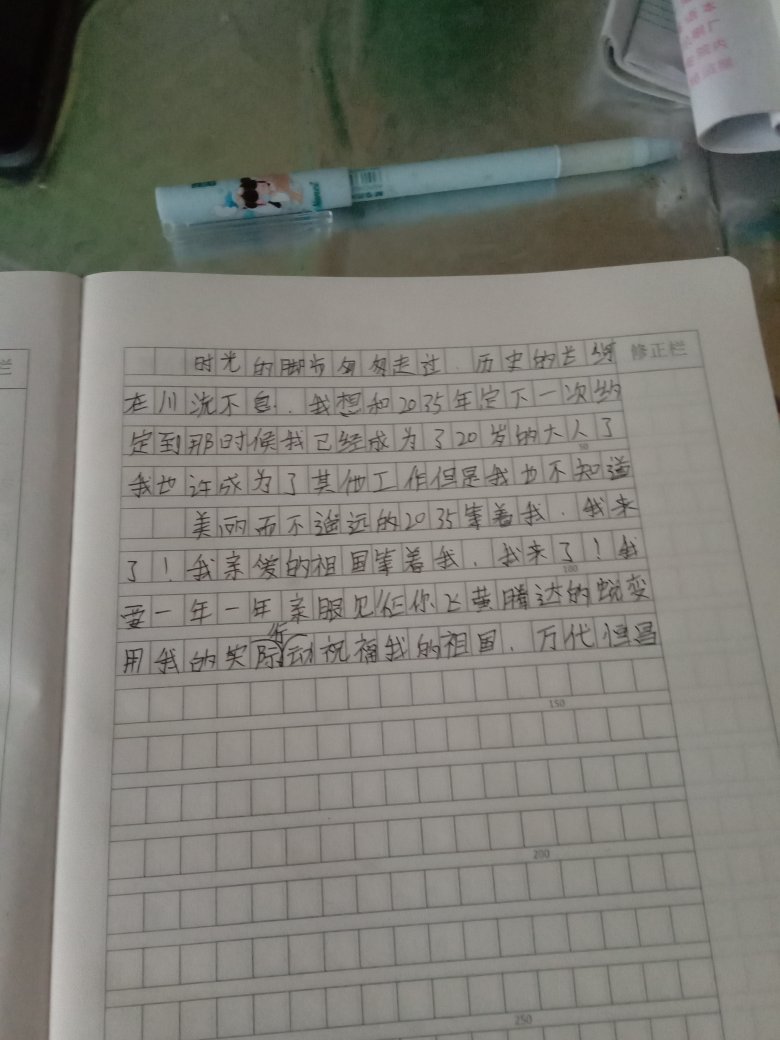 修正栏
时光的脚步匆匆走过.历史的长河
在川流不息.我想和2035年定下一次约
定到那时候我已经成为了20岁的大人了
50
我也许成为了其他工作但是我也不知道
美丽而不遥远的2035等着我.我来
了！我亲爱的祖国等着我.我来了！我
100
要一年一年亲眼见证你飞黄腾达的蜕变
用我的实际行动祝福我的祖国.万代恒昌
150
200
250
栏